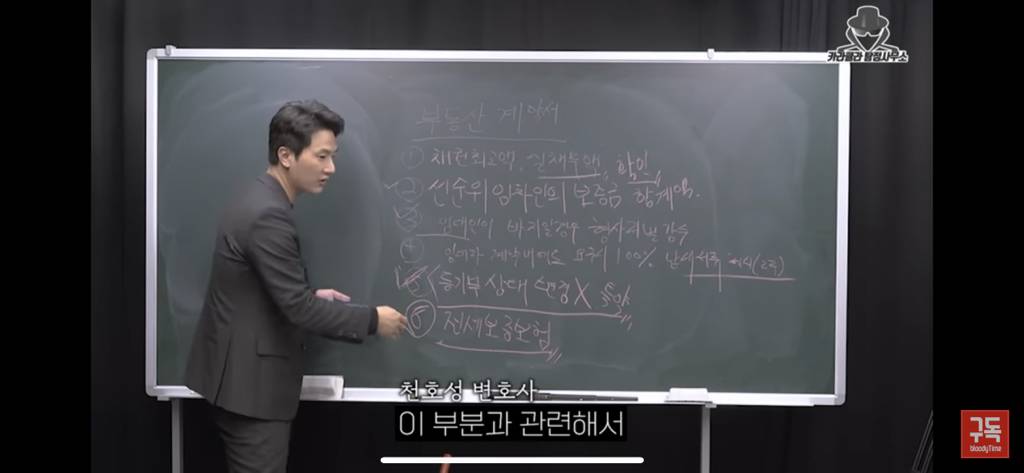 카라큘라 탐정사무소
부동산 계약서
① 채권최고액, 실채무액, 확인
② 선순위 임차인의 보증금 합계액.
③ 임대인이 바지일경우 형사처벌감수
④ 임차인 계약 요구시 100%
⑤ 등기부 상태 변경 X 특약
⑥ 전세보증보험
천호성 변호사
이 부분과 관련해서
구독
bloodyTime